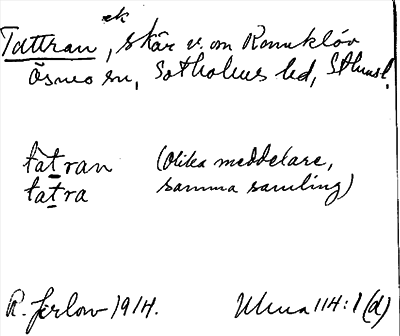 ek
Tattran, skär v. om Romsklöv
Ösmo sn, Sotholms hd, Sthmsl.
tàtran (Olika meddelare,
tatra samma samling)
R. Jerlow 1914. ULMA 114:1 (d)